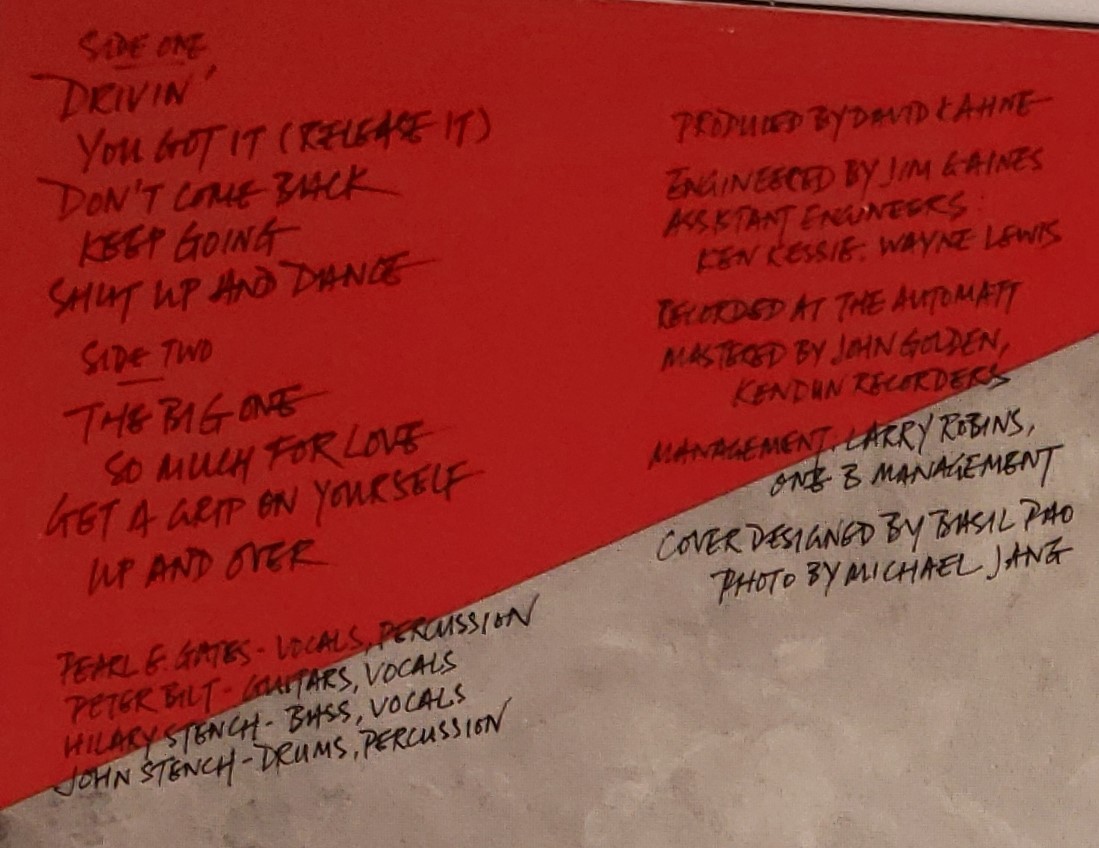 SIDE ONE
DRIVIN'
YOU GOT IT (RELEASE IT)
DON'T COME BACK
KEEP GOING
SHUT UP AND DANCE
SIDE TWO
THE BIG ONE
SO MUCH FOR LOVE
GET A GRIP ON YOURSELF
UP AND OVER
PEARL E. GATES - VOCALS, PERCUSSION
PETER BILT - GUITARS, VOCALS
HILARY STENCH - BASS, VOCALS
JOHN STENCH - DRUMS, PERCUSSION
PRODUCED BY DAVID KAHNE
ENGINEERED BY JIM GAINES
ASSISTANT ENGINEERS:
KEN KESSIE. WAYNE LEWIS
RECORDED AT THE AUTOMATT
MASTERED BY JOHN GOLDEN,
KENDUN RECORDERS
MANAGEMENT: LARRY ROBINS,
ONE B MANAGEMENT
COVER DESIGNED BY BASIL PAO
PHOTO BY MICHAEL JANG